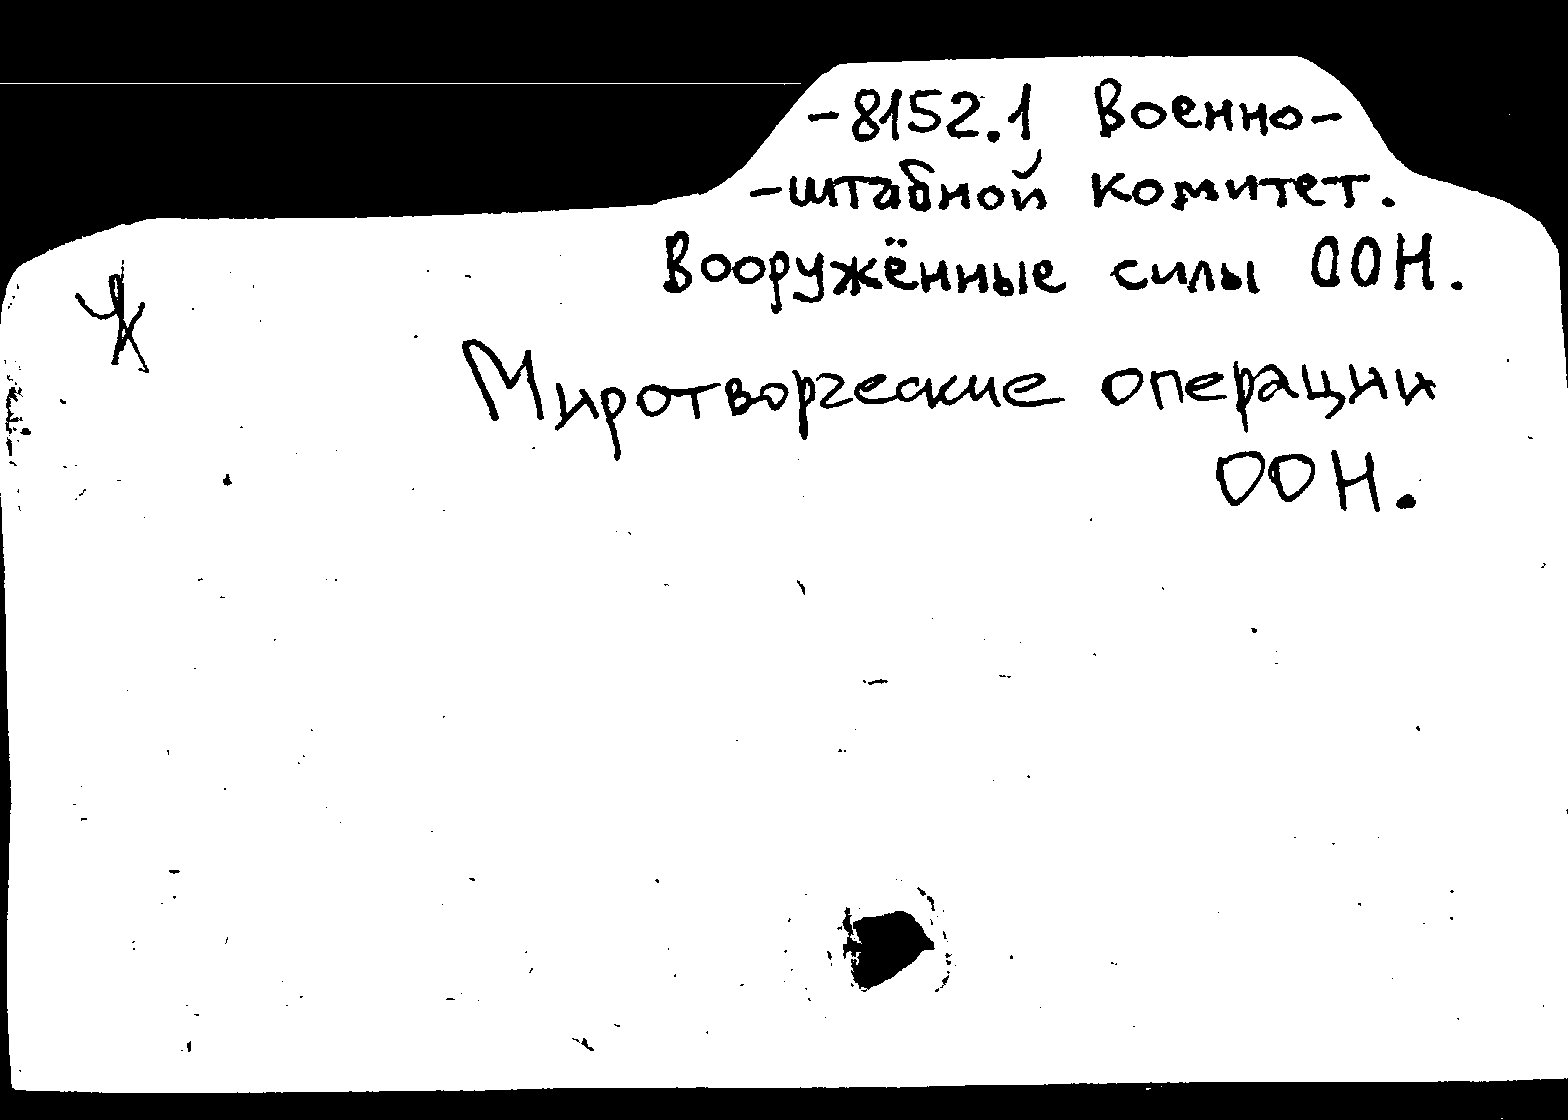 -8152.1 Военно-
-штабной комитет.
Вооружённые силы ООН.
Миротворческие операции
ООН.